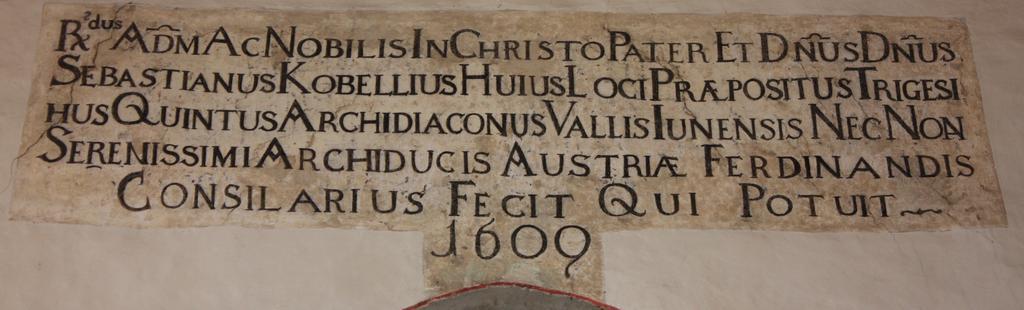 Rx̃dus ADM̃ AC NOBILIS IN CHRISTO PATER ET DÑUS DÑUS
SEBASTIANUS KOBELLIUS HUIUS LOCI PRÆPOSITUS TRIGESI
HUS QUINTUS ARCHIDIACONUS VALLIS IUNENSIS NEC NON
SERENISSIMI ARCHIDUCIS AUSTRIÆ FERDINANDIS
CONSILARIUS FECIT QUI POTUIT
1609